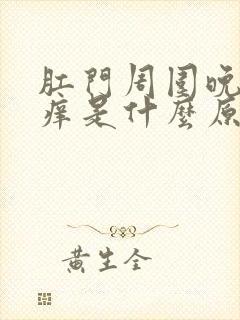 肛門周圍晚
痒是什麼原
黃生全